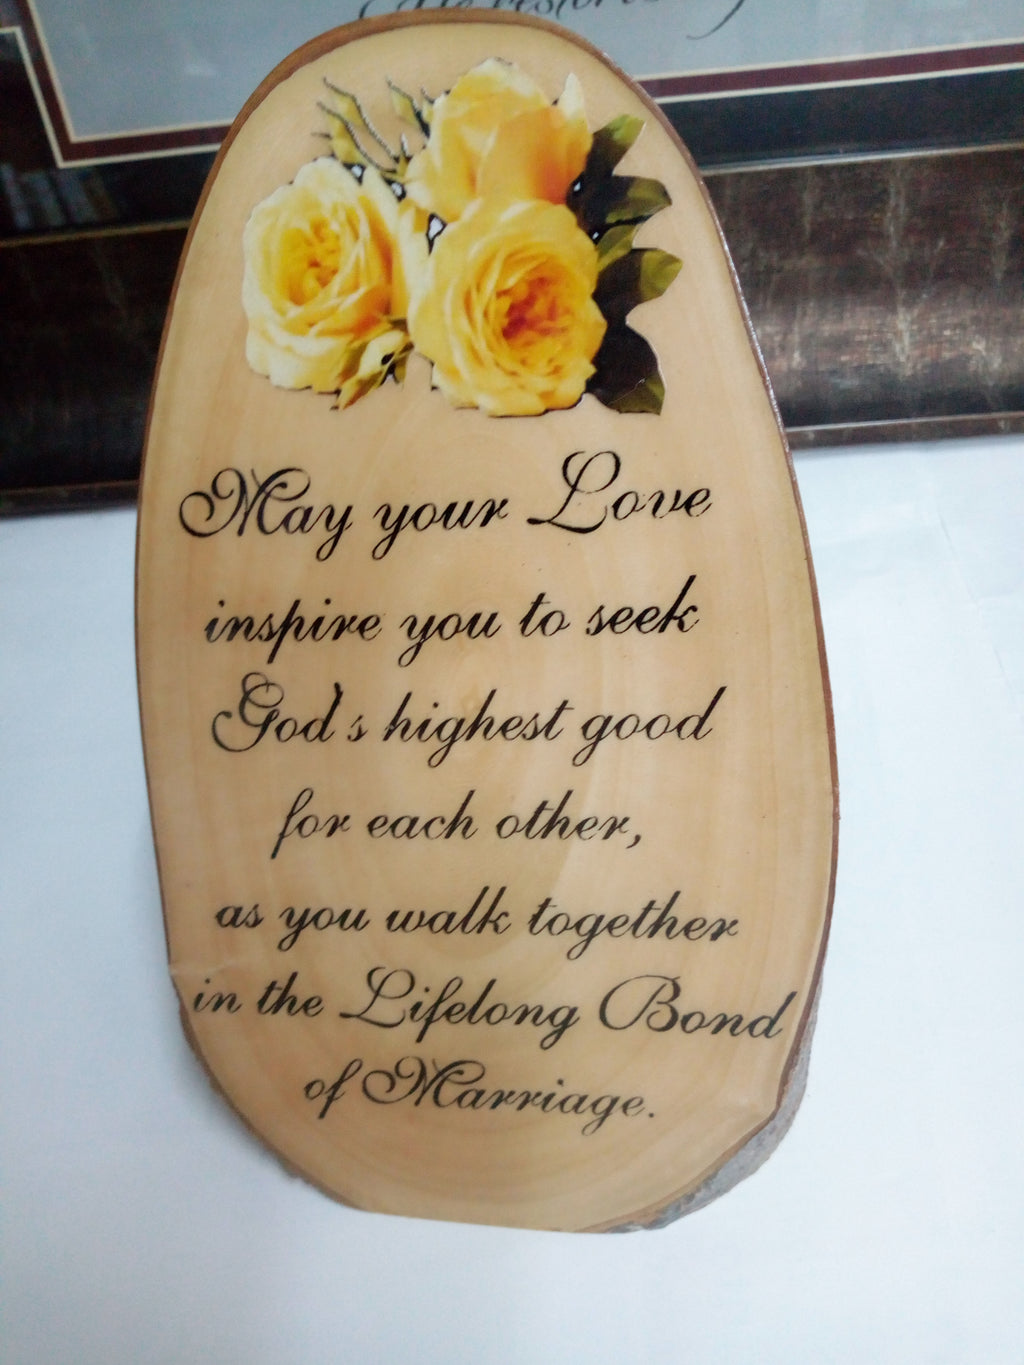 May your Love
inspire you to seek
God's highest good
for each other,
as you walk together
in the Lifelong Bond
of Marriage.